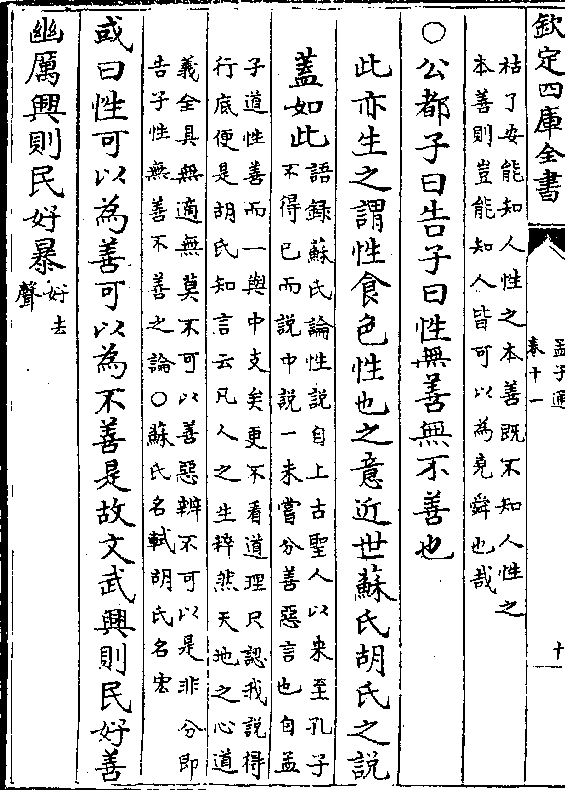 欽定四庫全書
孟子通
卷十一
十
枯了安能知人性之本善既不知人性之
本善則豈能知人皆可以為堯舜也哉
○公都子曰告子曰性無善無不善也
此亦生之謂性食色性也之意近世蘇氏胡氏之說
蓋如此
語錄蘇氏論性說自上古聖人以來至孔子
不得已而說中說一未嘗分善惡言也自孟
子道性善而一與中支矣更不看道理只認我說得
行底便是胡氏知言云凡人之生粹然天地之心道
義全具無適無莫不可以善惡辨不可以是非分即
告子性無善不善之論○蘇氏名軾胡氏名宏
或曰性可以為善可以為不善是故文武興則民好善
幽厲興則民好暴
好去
聲